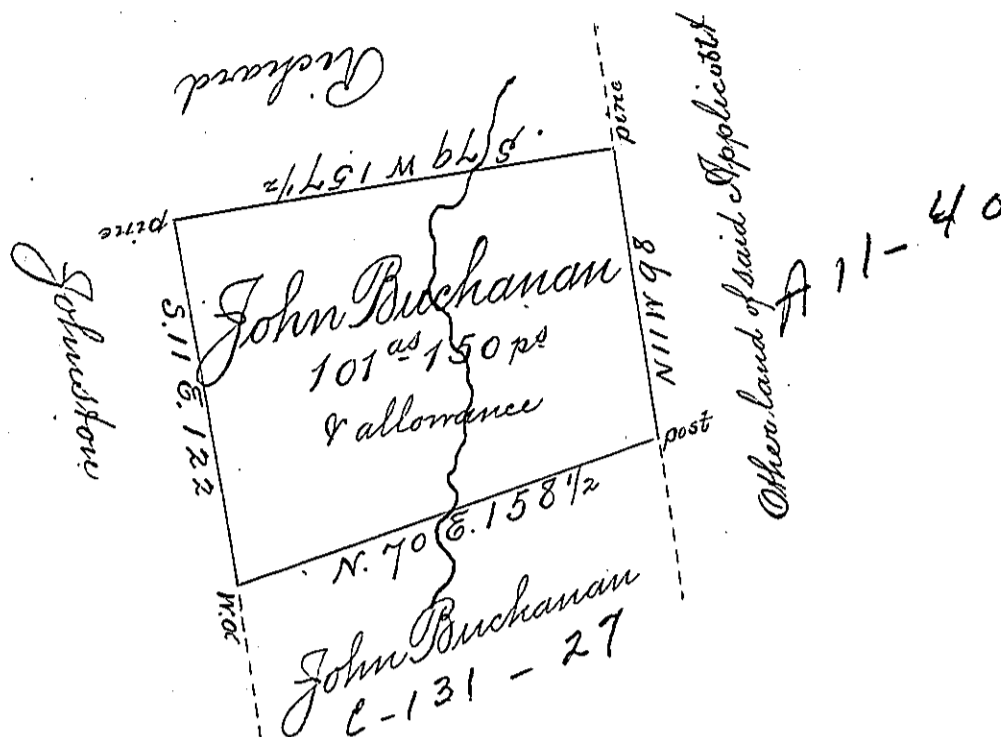 Richard
S 79 W 157 1/2
pine
pine
Johnston
S. 11 E. 122
John Buchanan
101 as 150 ps
& allowance
N 11 W 98
Other land of said Applicant
A 11-40
post
N. 70 E. 158 1/2
W.O
John Buchanan
C-131-27